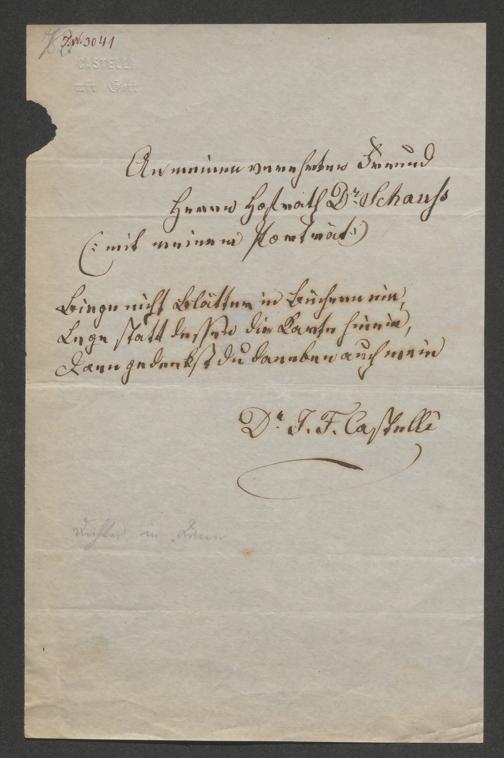 J.N. 3041
CASTELLI
mit Gott
An meinen verehrten Freund
Herrn Hofrath Dr. Schauss
(: mit meinem Porträt :)
Biege nicht Blätter in Büchern ein,
Lege statt dessen die Karte hinein,
Dann gedenkst du daneben auch mein
Dr. I. F. Castelli
Dichter in Wien